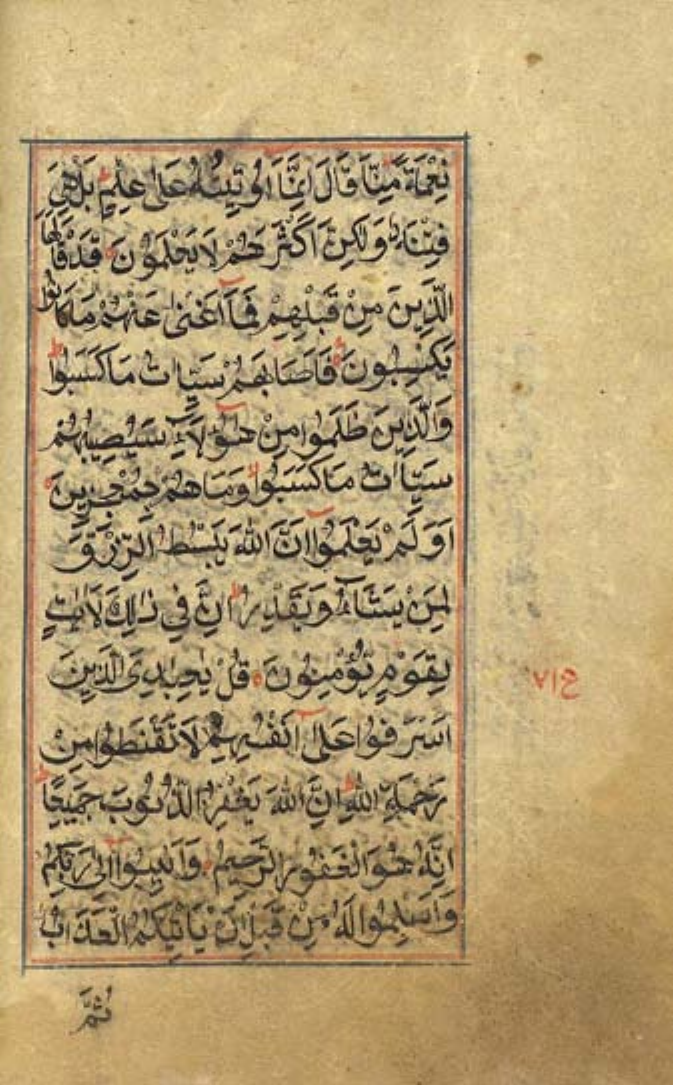 نِعْمَةً مِنَّا قَالَ اِنَّمَا اُوتِيتُهُ عَلٰى عِلْمٍ بَلْ هِيَ
فِتْنَةٌ وَلٰكِنَّ اَكْثَرَهُمْ لَا يَعْلَمُونَ قَدْ قَالَهَا
الَّذِينَ مِنْ قَبْلِهِمْ فَمَا اَغْنٰى عَنْهُمْ مَا كَانُوا
يَكْسِبُونَ فَاَصَابَهُمْ سَيِّاٰتُ مَا كَسَبُوا
وَالَّذِينَ ظَلَمُوا مِنْ هٰؤُلَاءِ سَيُصِيبُهُمْ
سَيِّاٰتُ مَا كَسَبُوا وَمَا هُمْ بِمُعْجِزِينَ
اَوَلَمْ يَعْلَمُوا اَنَّ اللّٰهَ يَبْسُطُ الرِّزْقَ
لِمَنْ يَشَاءُ وَيَقْدِرُ اِنَّ فِي ذٰلِكَ لَاٰيٰتٍ
لِقَوْمٍ يُؤْمِنُونَ قُلْ يٰعِبَادِيَ الَّذِينَ
اَسْرَفُوا عَلٰى اَنْفُسِهِمْ لَا تَقْنَطُوا مِنْ
رَحْمَةِ اللّٰهِ اِنَّ اللّٰهَ يَغْفِرُ الذُّنُوبَ جَمِيعًا
اِنَّهُ هُوَ الْغَفُورُ الرَّحِيمُ وَاَنِيبُوا اِلٰى رَبِّكُمْ
وَاَسْلِمُوا لَهُ مِنْ قَبْلِ اَنْ يَاْتِيَكُمُ الْعَذَابُ
ثُمَّ